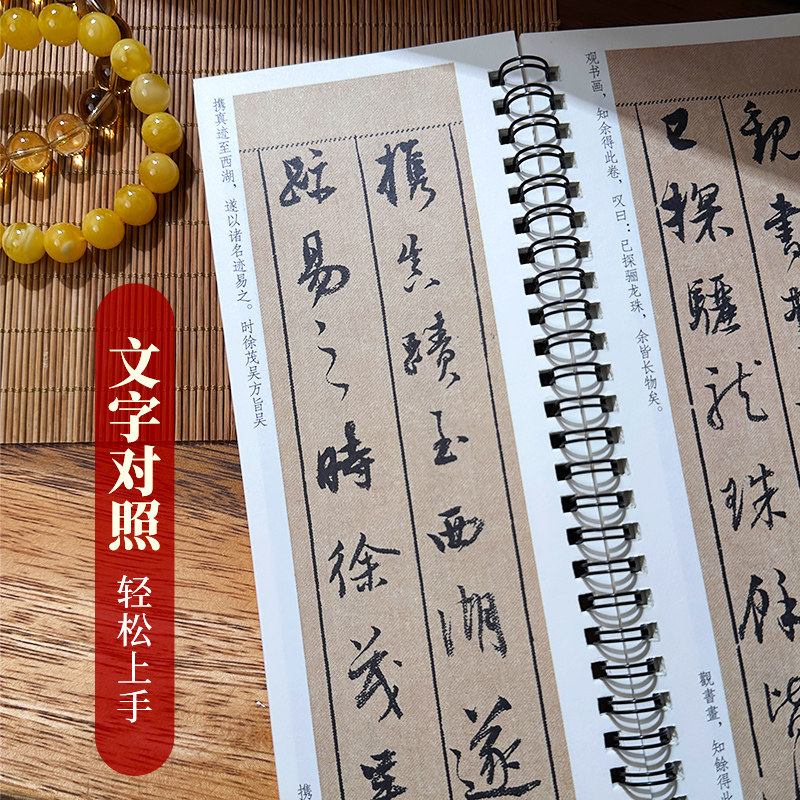 文字对照
轻松上手
携真迹至西湖，遂以诸名迹易之。时徐茂吴方旨吴
携真蹟至西湖遂
跡易之時徐茂
携
观书画，知余得此卷，叹曰：已探骊龙珠，余皆长物矣。
觀書
已探驪龍珠餘皆
觀書畫，知餘得此